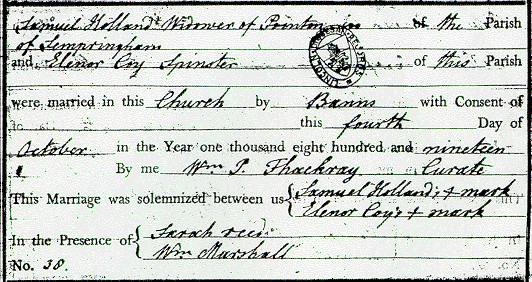 Samuel Holland Widower of Pointon in of the Parish
of Sempringham
and Elenor Coy Spinster of this Parish
were married in this Church by Banns with Consent of
this fourth Day of
October in the Year one thousand eight hundred and nineteen
By me Wm P. Thackray Curate
This Marriage was solemnized between us { Samuel Holland's + mark
Elenor Coy's + mark
In the Presence of { Sarah
Wm Marshall
No. 38.